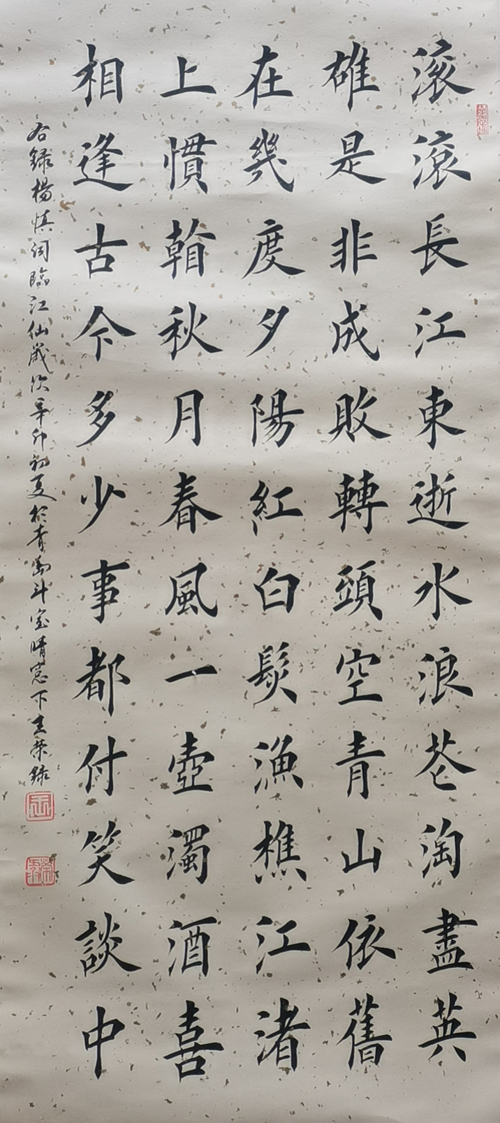 滚滚長江東逝水浪花淘盡英
雄是非成敗轉頭空青山依舊
在幾度夕陽紅白髮漁樵江渚
上慣看秋月春風一壺濁酒喜
相逢古今多少事都付笑談中
右録楊慎詞臨江仙歲次辛卯初夏於青島斗室晴窓下